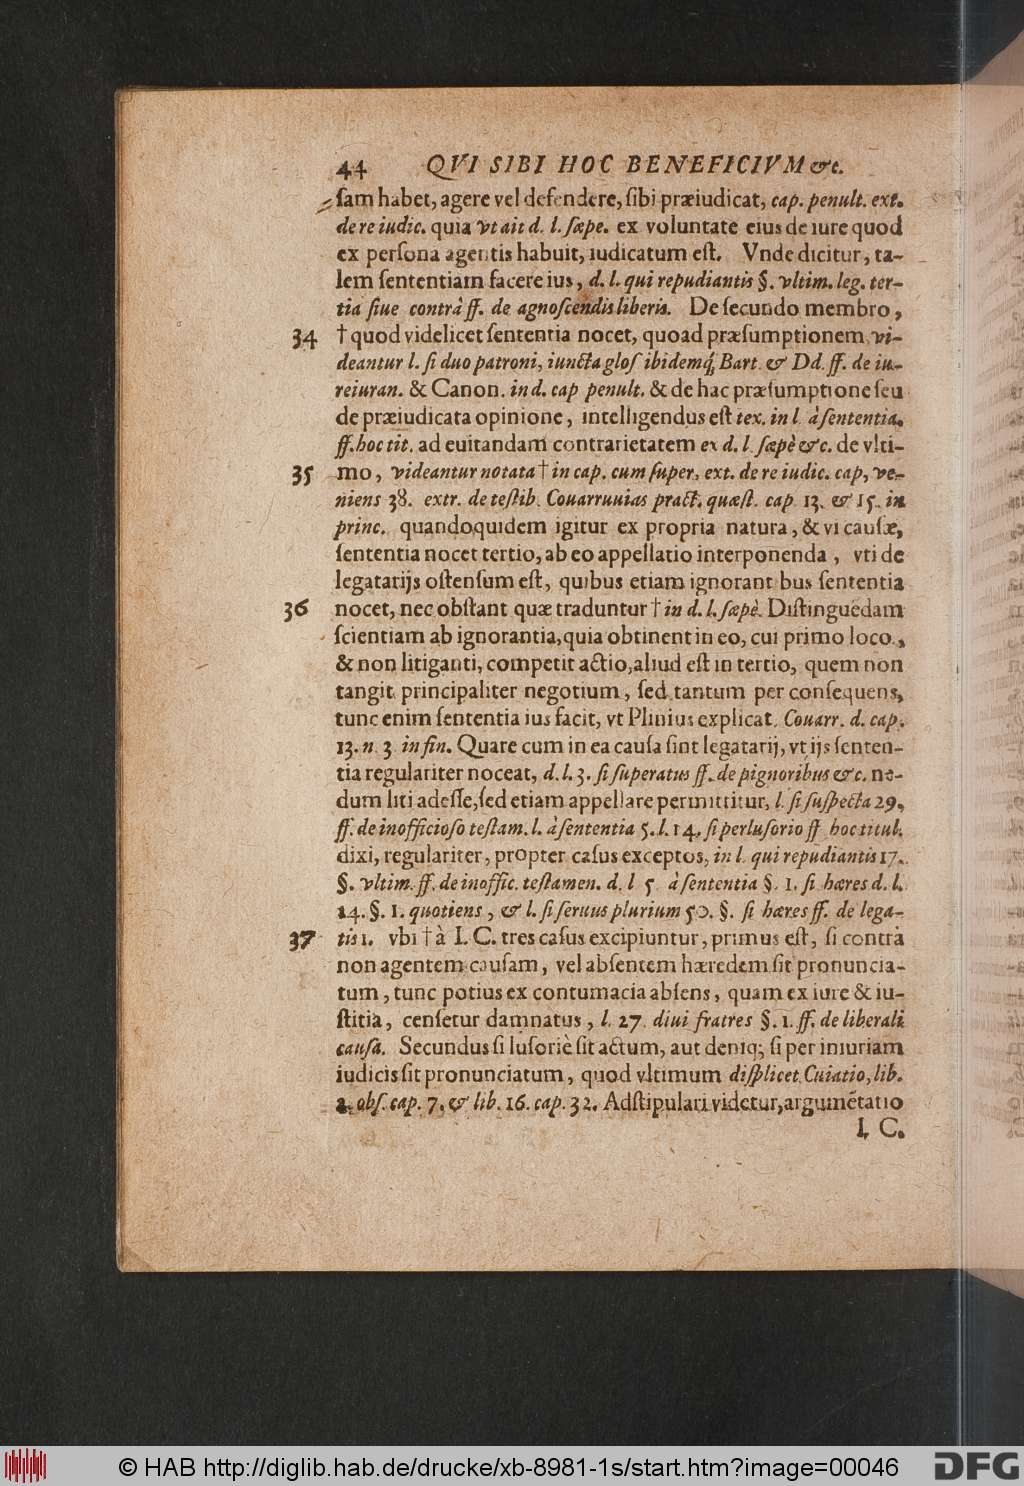 44 QVI SIBI HOC BENEFICIVM &c.
ſam habet, agere vel defendere, ſibi præiudicat, cap. penult. ext.
de re iudic. quia vt ait d. l. ſæpe. ex voluntate eius de iure quod
ex perſona agentis habuit, iudicatum eſt. Vnde dicitur, ta-
lem ſententiam facere ius, d. l. qui repudiantis §. vltim. leg. ter-
tia ſiue contrà ff. de agnoſcendis liberis. De ſecundo membro,
34 † quod videlicet ſententia nocet, quoad præſumptionem, vi-
deantur l. ſi duo patroni, iuncta gloſ ibidemq́; Bart. & Dd. ff. de iu-
reiuran. & Canon. in d. cap penult. & de hac præſumptione ſeu
de præiudicata opinione, intelligendus eſt tex. in l à ſententia.
ff. hoc tit. ad euitandam contrarietatem ex d. l. ſæpè &c. de vlti-
35 mo, videantur notata † in cap. cum ſuper, ext. de re iudic. cap, ve-
niens 38. extr. de teſtib. Couarruuias pract. quæſt. cap. 13. & 15. in
princ. quandoquidem igitur ex propria natura, & vi cauſæ,
ſententia nocet tertio, ab eo appellatio interponenda, vti de
legatarijs oſtenſum eſt, quibus etiam ignorant bus ſententia
36 nocet, nec obſtant quæ traduntur † in d. l. ſæpè. Diſtinguẽdam
ſcientiam ab ignorantia, quia obtinent in eo, cui primo loco,
& non litiganti, competit actio, aliud eſt in tertio, quem non
tangit principaliter negotium, ſed tantum per conſequens,
tunc enim ſententia ius facit, vt Plinius explicat. Couarr. d. cap.
13. n. 3. in fin. Quare cum in ea cauſa ſint legatarij, vt ijs ſenten-
tia regulariter noceat, d. l. 3. ſi ſuperatus ff. de pignoribus &c. ne-
dum liti adeſſe, ſed etiam appellare permittitur, l. ſi ſuſpecta 29,
ff. de inofficioſo teſtam. l. à ſententia 5. l. 14. ſi perluſorio ff hoc titul.
dixi, regulariter, propter caſus exceptos, in l. qui repudiantis 17.
§. vltim. ff. de inoffic. teſtamen. d. l 5 à ſententia §. 1. ſi hæres d. l.
14. §. 1. quotiens, & l. ſi ſeruus plurium 50. §. ſi hæres ff. de lega-
37 tis 1. vbi † à I. C. tres caſus excipiuntur, primus eſt, ſi contrà
non agentem cauſam, vel abſentem hæredem ſit pronuncia-
tum, tunc potius ex contumacia abſens, quam ex iure & iu-
ſtitia, cenſetur damnatus, l. 27. diui fratres §. 1. ff. de liberali
cauſâ. Secundus ſi luſoriè ſit actum, aut deniq; ſi per iniuriam
iudicis ſit pronunciatum, quod vltimum diſplicet Cuiatio, lib.
2. obſ. cap. 7. & lib. 16. cap. 32. Adſtipulari videtur, argumẽtatio
I. C.
© HAB http://diglib.hab.de/drucke/xb-8981-1s/start.htm?image=00046
DFG